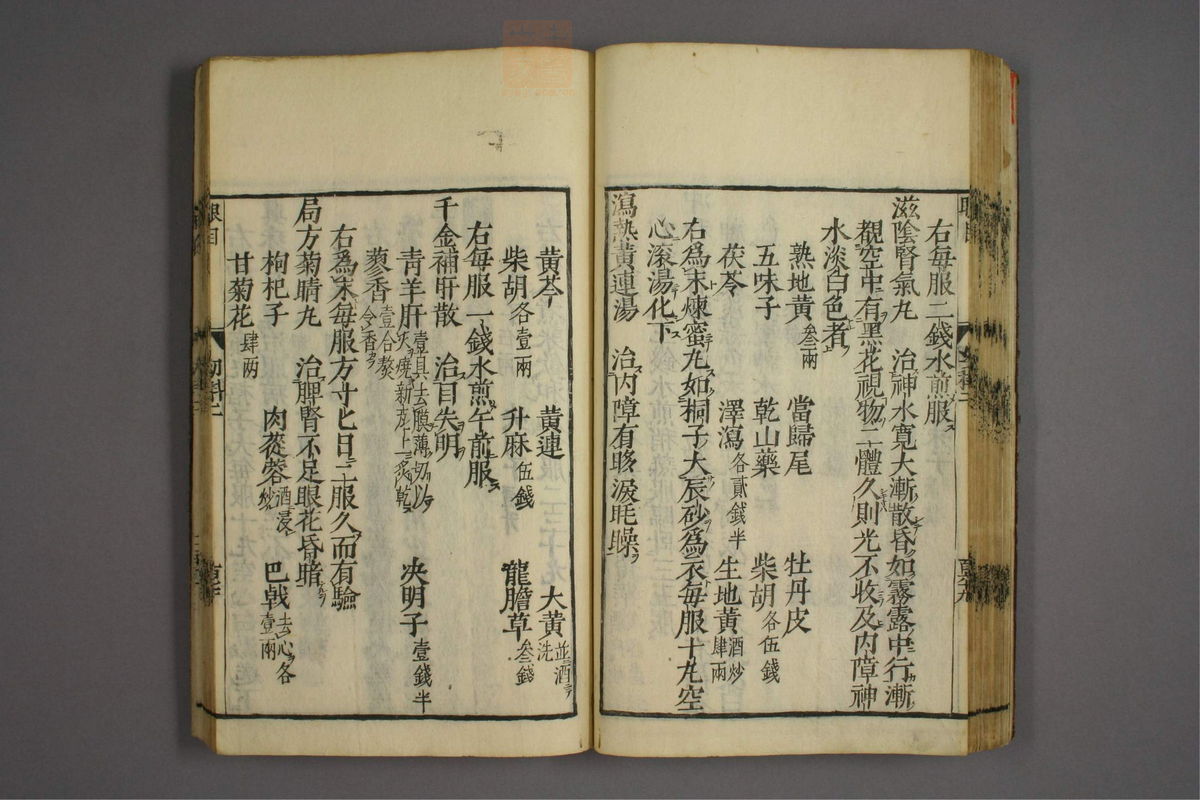 右每服二錢水煎服
滋陰腎氣丸　治神水寬大漸散昏如霧露中行漸
覩空中有黑花視物二體久則光不收及內障神
水淡白色者
熟地黃叁兩　當歸尾　牡丹皮
五味子　乾山藥　柴胡各伍錢
茯苓　澤瀉各貳錢半　生地黃酒炒肆兩
右爲末煉蜜丸如桐子大辰砂爲衣每服十丸空
心滾湯化下
瀉熱黃連湯　治內障有眵淚眊矂
黃芩　黃連　大黃並酒洗
柴胡各壹兩　升麻伍錢　龍膽草叁錢
右每服一錢水煎午前服
千金補肝散　治目失明
青羊肝壹具去膜薄切以新瓦上炙乾　決明子壹錢半
蓼香壹合熬令香
右爲末每服方寸匕日二服久而有驗
局方菊睛丸　治脾腎不足眼花昏暗
枸杞子　肉蓯蓉酒浸炒　巴戟去心各壹兩
甘菊花肆兩
眼目